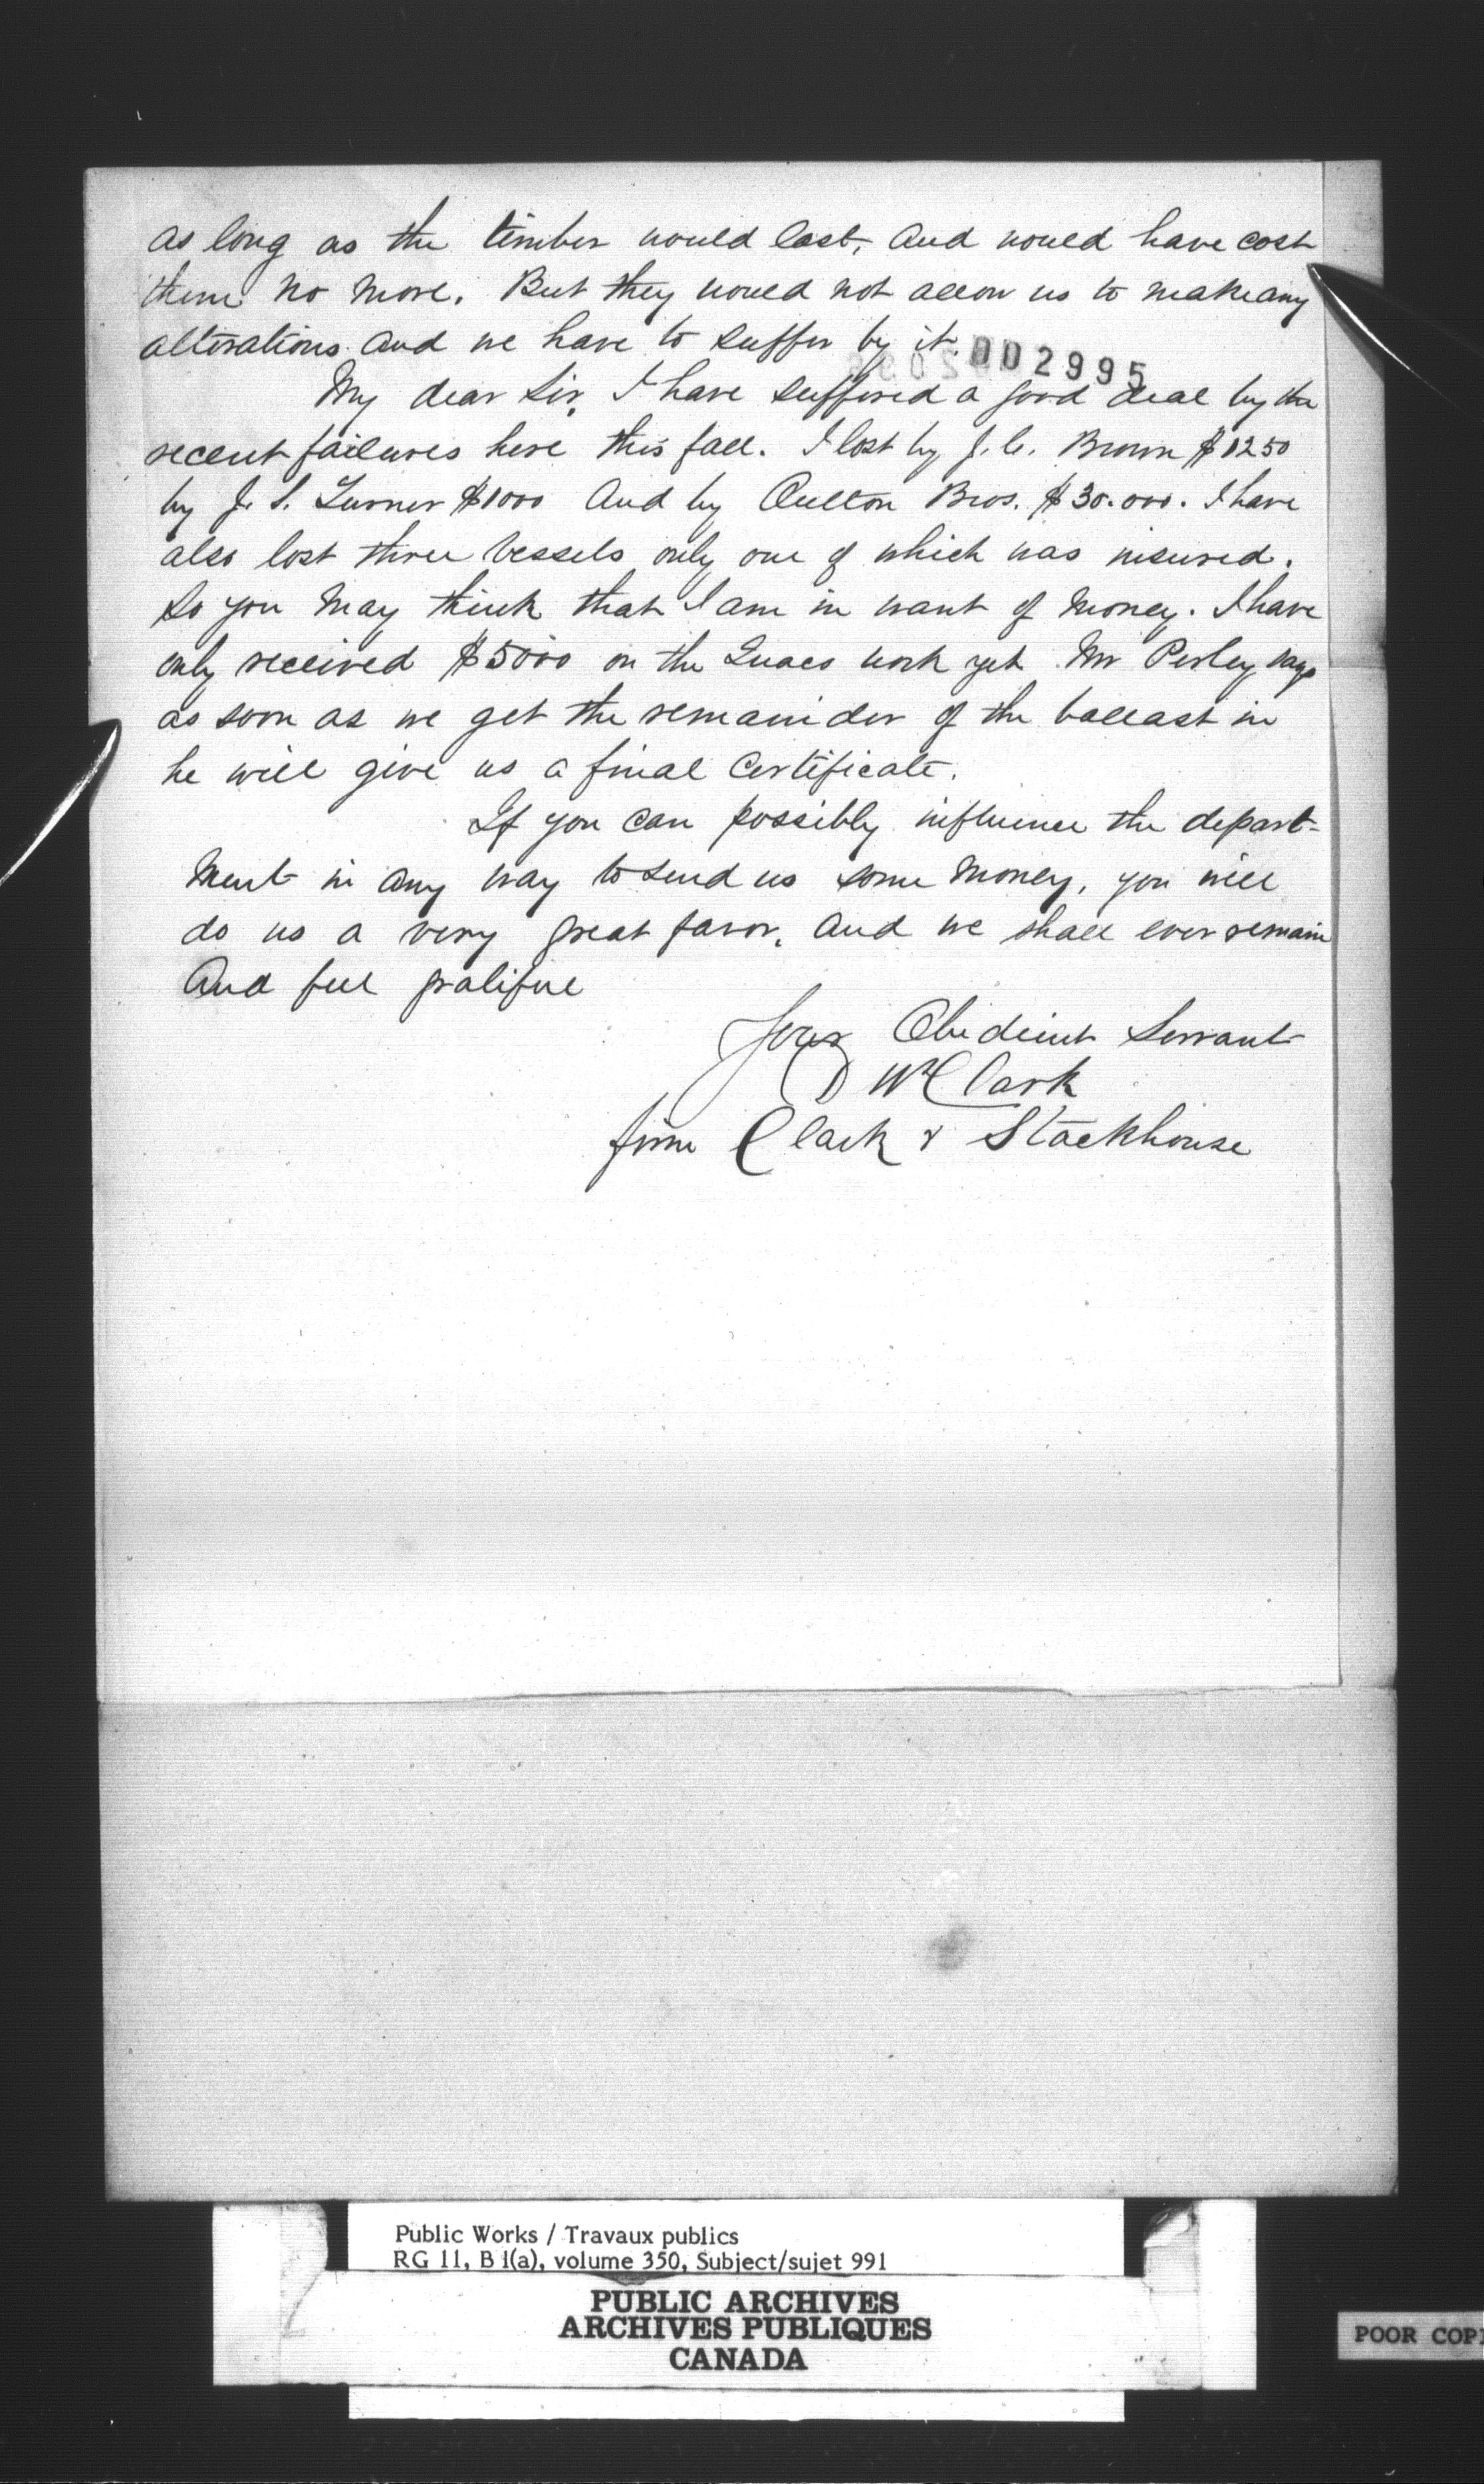 as long as the timber would last, and would have cost
them no more. But they would not allow us to make any
alterations and we have to suffer by it.
002995
My dear Sir, I have suffered a good deal by the
recent failures here this fall. I lost by J. C. Brown $1250
by J. S. Turner $1000 And by Oulton Bros. $30.000. I have
also lost three vessels only one of which was insured.
So you may think that I am in want of money. I have
only received $5000 on the Quaco work yet. Mr Perley says
as soon as we get the remainder of the ballast in
he will give us a final Certificate.
If you can possibly influence the depart-
ment in any way to send us some money, you will
do us a very great favor, and we shall ever remain
And feel gratifue
Your Obedient Servant
D W Clark
firm Clark & Stackhouse
Public Works / Travaux publics
RG 11, B 1(a), volume 350, Subject/sujet 991
PUBLIC ARCHIVES
ARCHIVES PUBLIQUES
CANADA
POOR COP